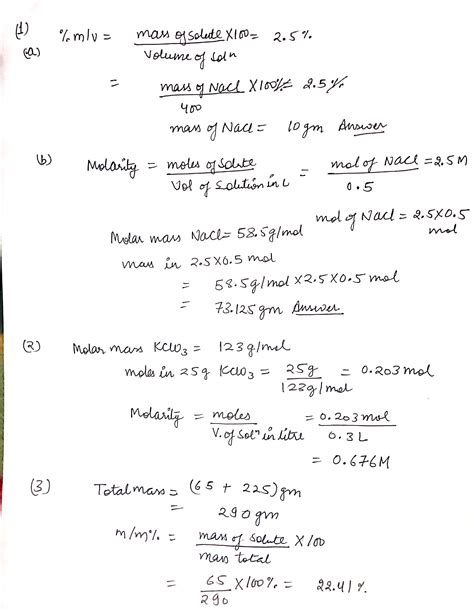 (1) % m/v = mass of solute X100 = 2.5 %
(a) Volume of Solⁿ
= mass of Nacl X100% = 2.5 %
400
mass of Nacl = 10 gm Answer
(b) Molarity = moles of Solute = mol of Nacl = 2.5 M
Vol of Solution in L 0.5
mol of Nacl = 2.5 X 0.5
mol
Molar mass Nacl = 58.5 g/mol
mass in 2.5X0.5 mol
= 58.5 g/mol X 2.5 X 0.5 mol
= 73.125 gm Answer
(2) Molar mass KClO3 = 123 g/mol
moles in 25 g KClO3 = 25g = 0.203 mol
123g/mol
Molarity = moles = 0.203 mol
V. of Solⁿ in litre 0.3 L
= 0.676M
(3) Total mass = (65 + 225) gm
= 290 gm
m/m% = mass of solute X 100
mass total
= 65 X 100% = 22.41 %
290